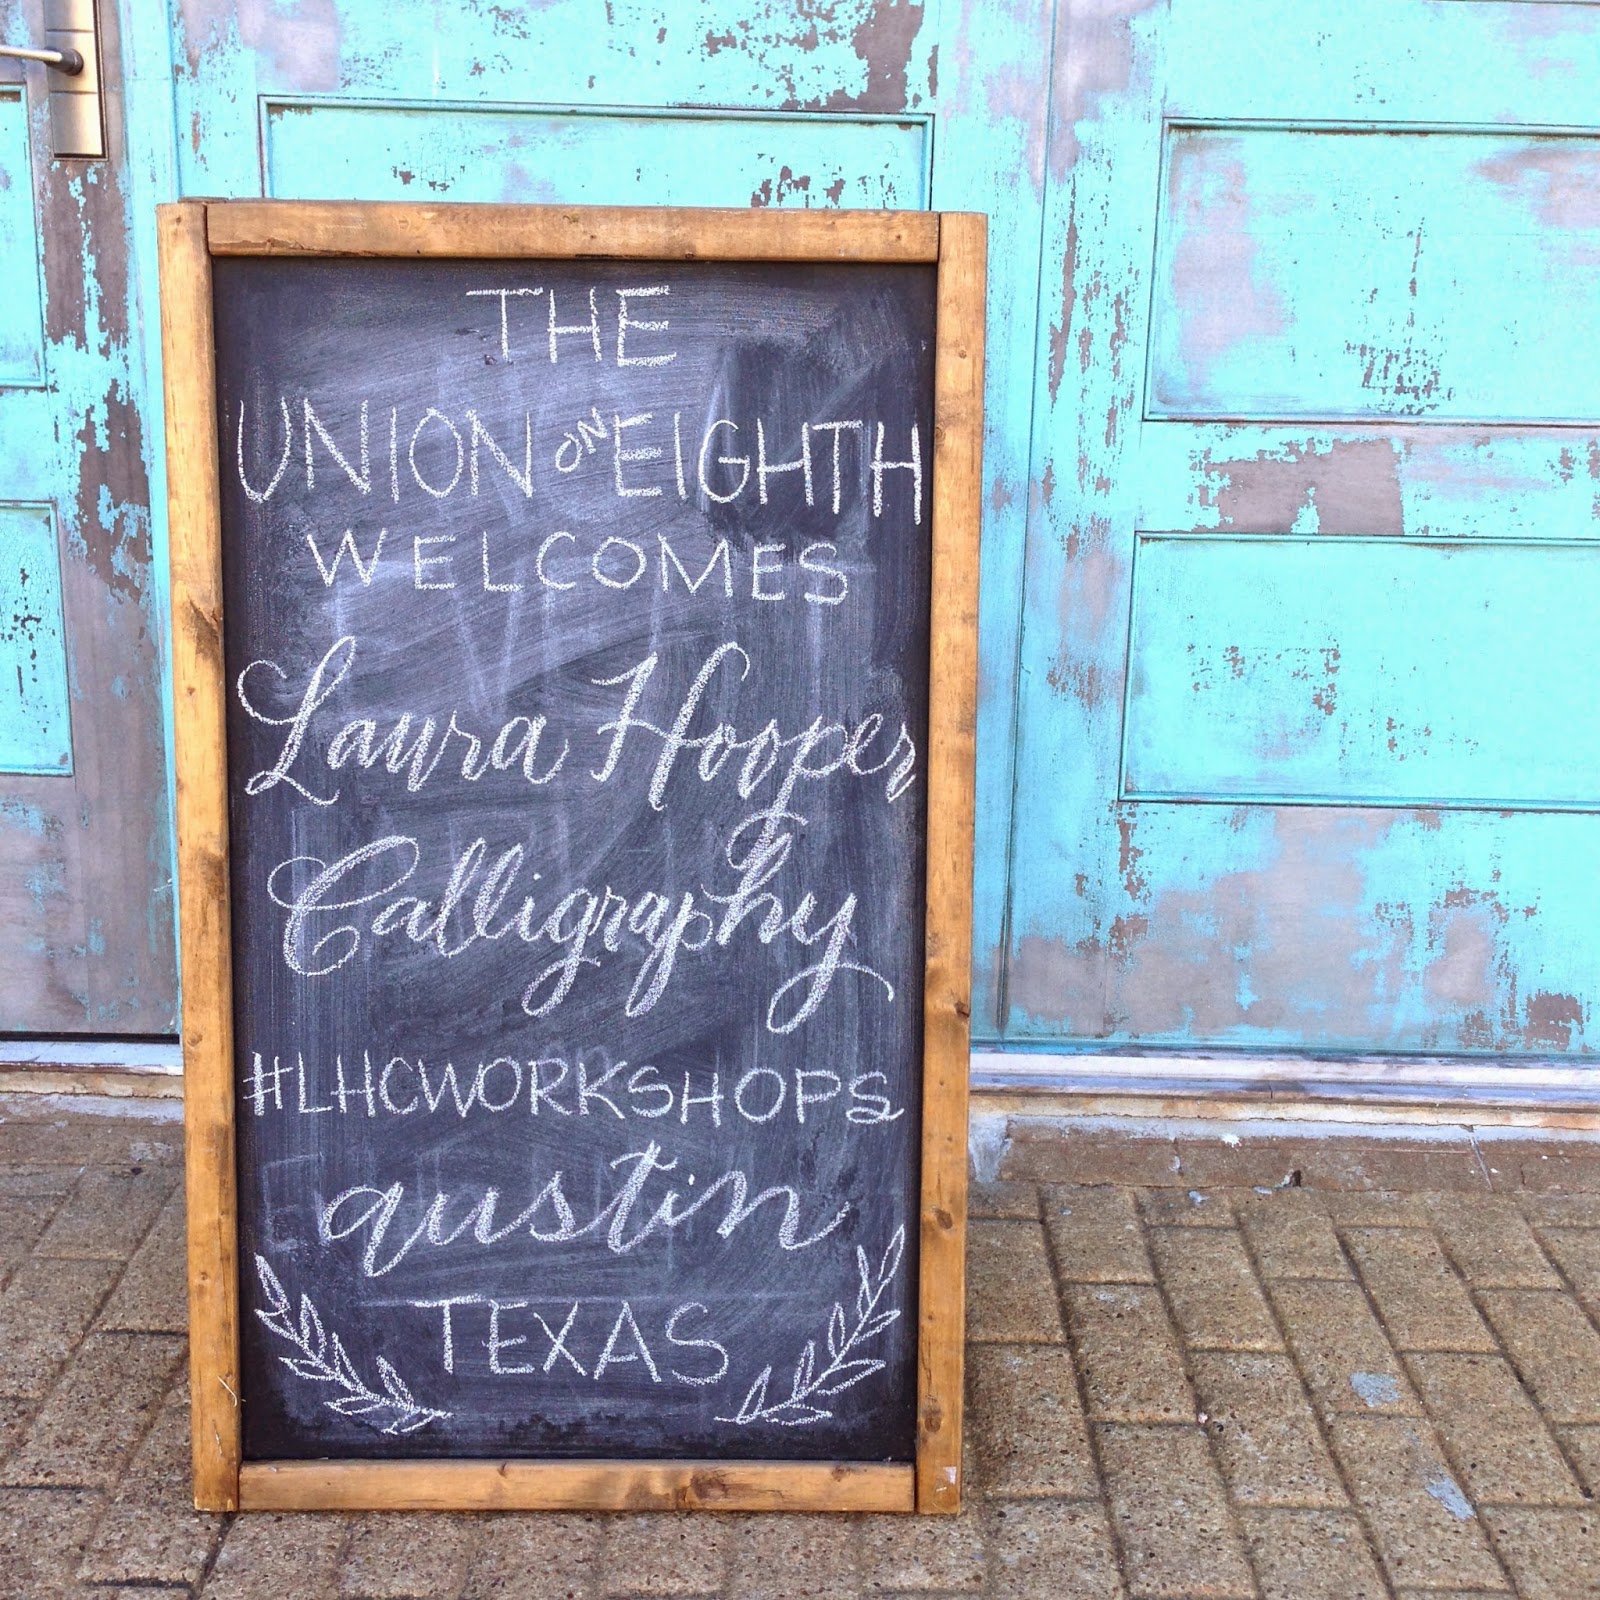 THE
UNION ON EIGHTH
WELCOMES
Laura Hooper
Calligraphy
#LHCWORKSHOPS
austin
TEXAS